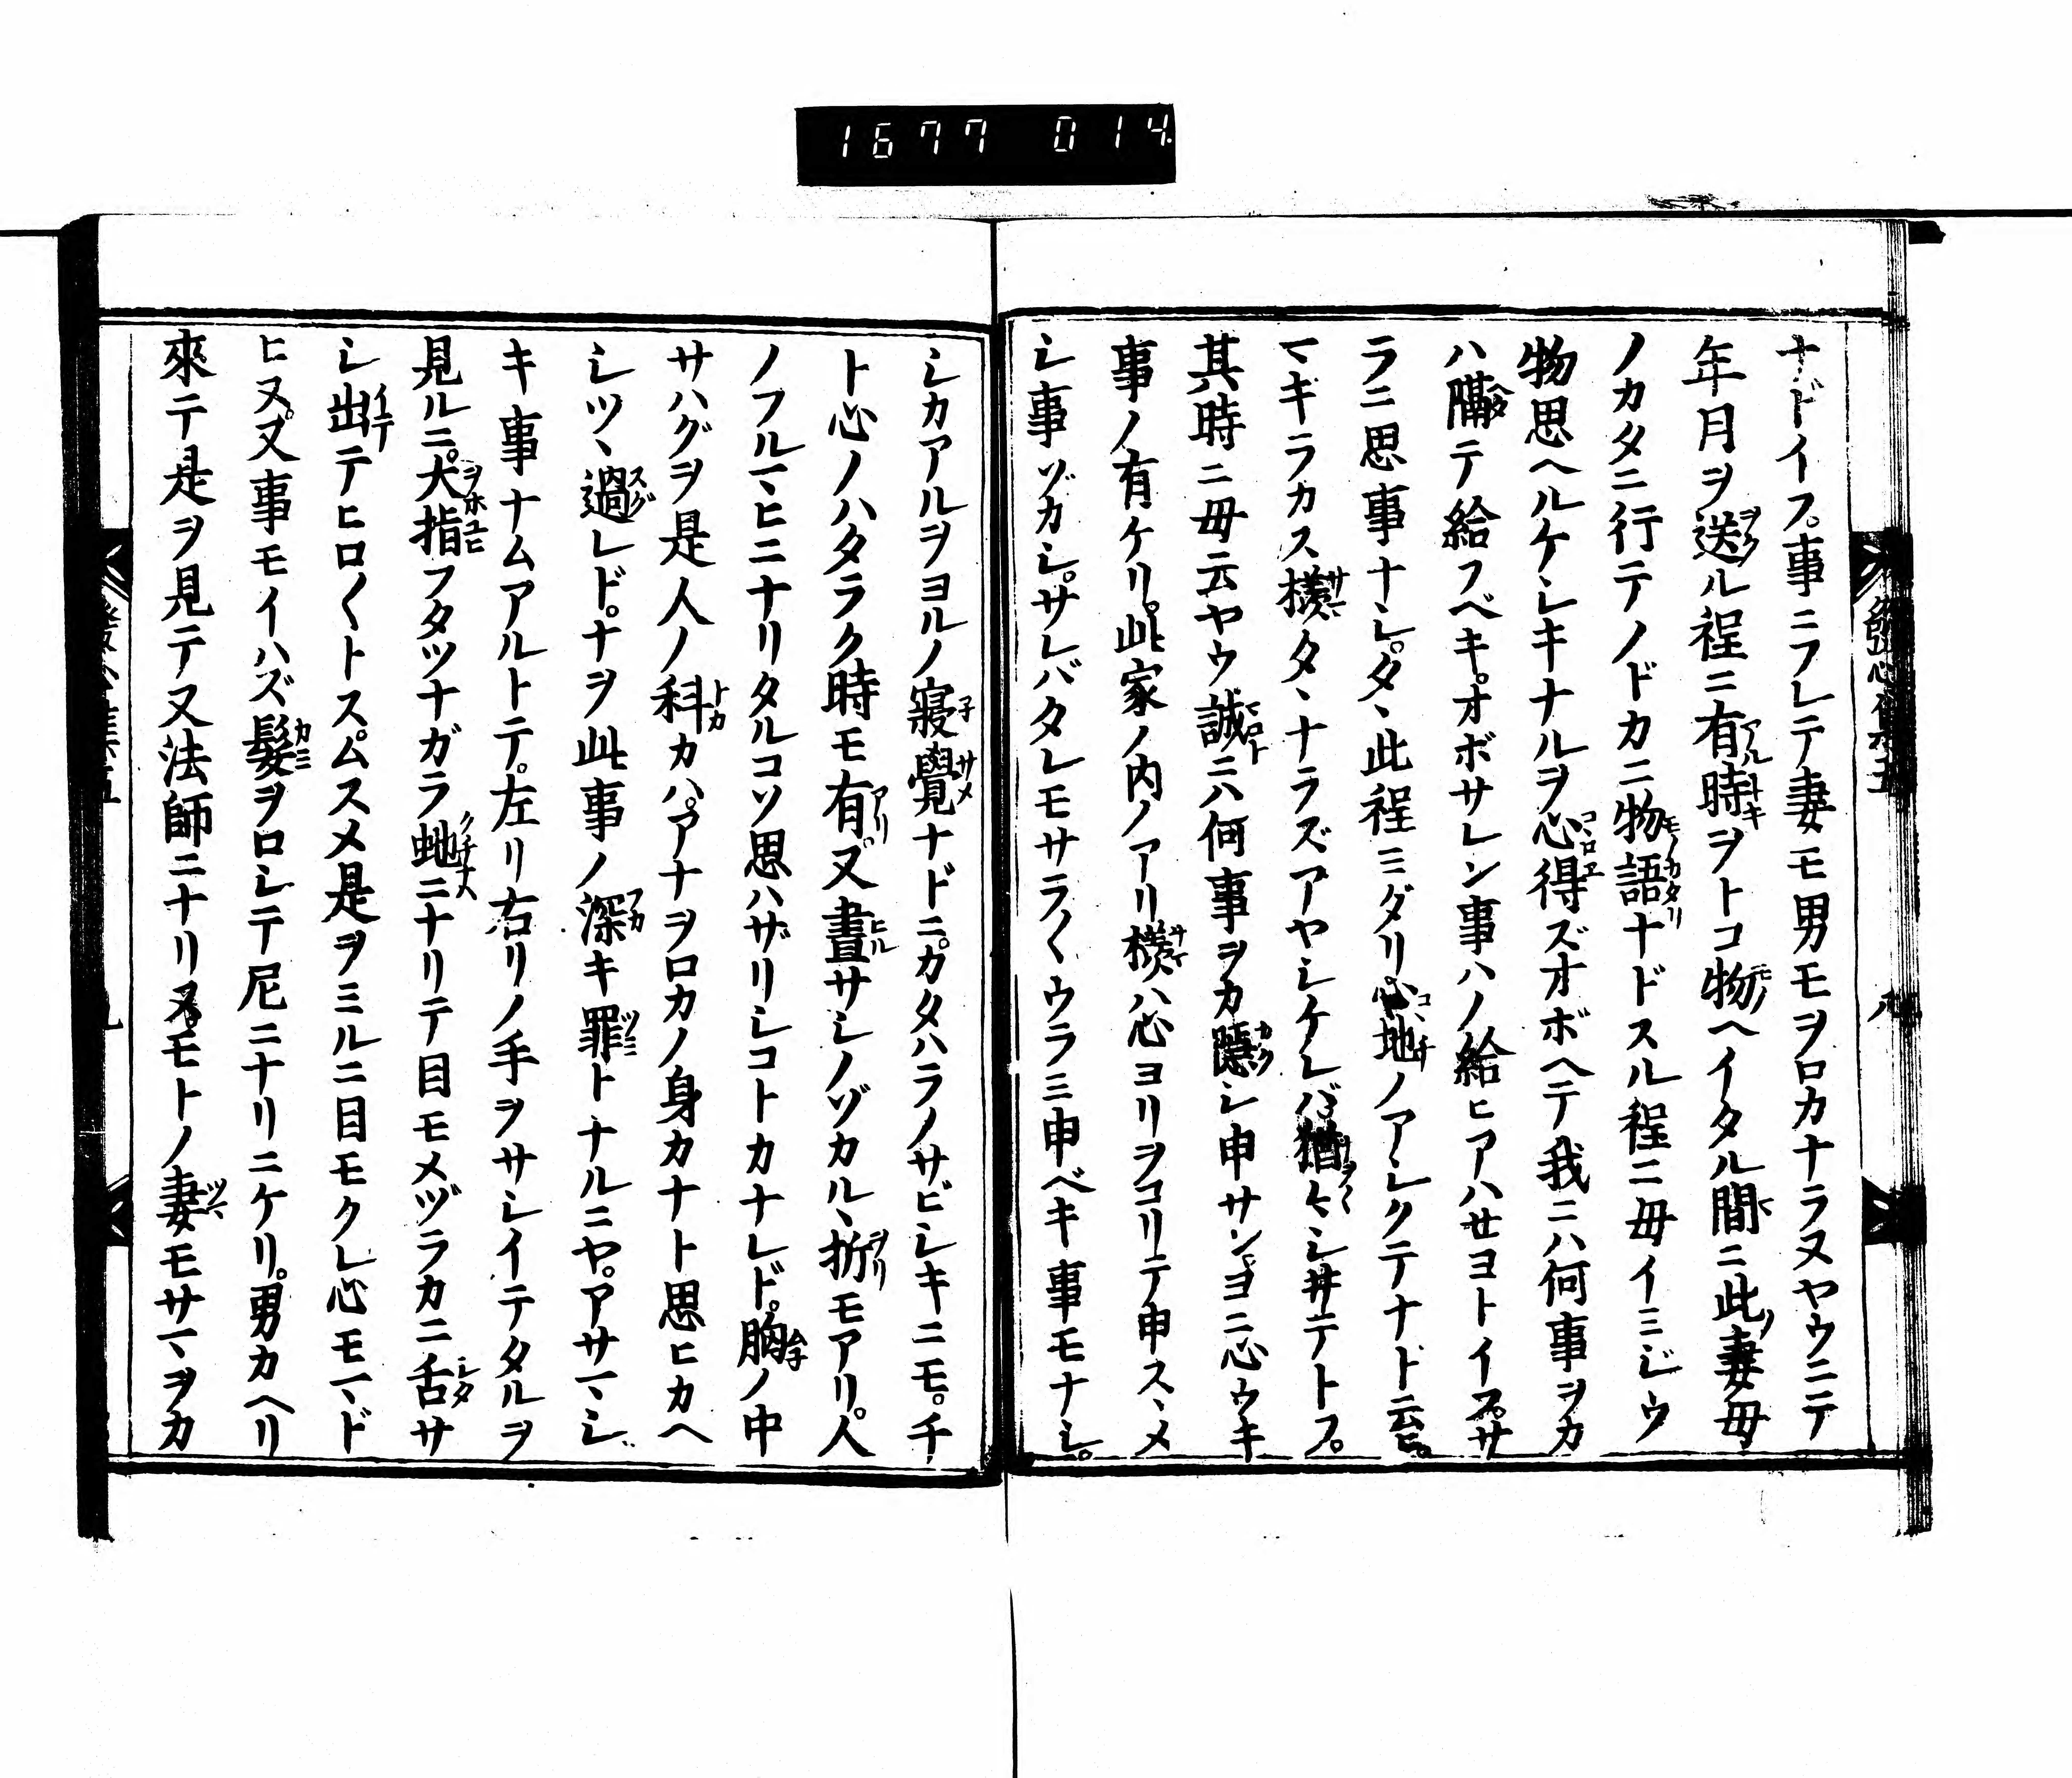 1677 014
ナドイフ。事ニフレテ妻モ男モヲロカナラヌヤウニテ
年月ヲ送ル程ニ有時ヲトコ物ヘイタル間ニ此妻母
ノカタニ行テノドカニ物語ナドスル程ニ母イミジウ
物思ヘルケシキナルヲ心得ズオボヘテ我ニハ何事ヲカ
ハ隔テ給フベキ。オボサレン事ハノ給ヒアハせヨトイフ。サ
ラニ思事ナシ。タヽ此程ミダリ心地ノアシクテナド云ヒ。
マギラカス様タヽナラズアヤシケレバ猶々シヰテトフ。
其時ニ母云ヤウ誠ニハ何事ヲカ隠シ申サン。ヨニ心ウキ
事ノ有ケリ。此家ノ内ノアリ様ハ心ヨリヲコリテ申スヽメ
シ事ゾカシ。サレバタレモサラ〱ウラミ申ベキ事モナシ。
シカアルヲヨルノ寝覺ナドニ。カタハラノサビシキニモ。チ
ト心ノハタラク時モ有。又晝サシノゾカルヽ折モアリ。人
ノフルマヒニナリタルコソ思ハザリシコトカナレド。胸ノ中
サハグヲ是人ノ科カハ。アナヲロカノ身カナト思ヒカヘ
シツヽ過レド。ナヲ此事ノ深キ罪トナルニヤ。アサマシ
キ事ナムアルトテ。左リ右リノ手ヲサシイテタルヲ
見ルニ。大指フタツナガラ虵ニナリテ目モメヅラカニ舌サ
シ出テヒロ〱トス。ムスメ是ヲミルニ目モクレ心モマド
ヒヌ。又事モイハズ髪ヲロシテ尼ニナリニケリ。男カヘリ
來テ是ヲ見テ又法師ニナリヌ。モトノ妻モサマヲカ